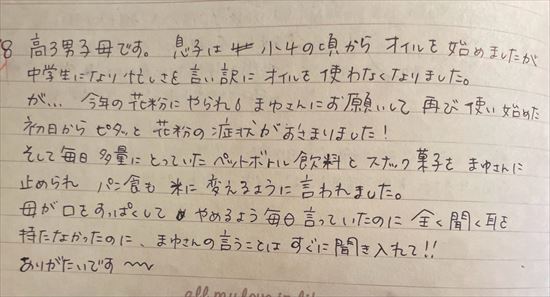 8 高3男子母です。 息子は 小4の頃から オイルを 始めましたが
中学生になり 忙しさを言い訳に オイルを使わなくなりました。
が… 今年の花粉にやられ まゆさんにお願いして 再び使い始めた
初日から ピタッと 花粉の症状がおさまりました!
そして毎日 多量にとっていた ペットボトル飲料と スナック菓子を まゆさんに
止められ パン食も 米に変えるように 言われました。
母が口をすっぱくして やめるよう 毎日言っていたのに 全く聞く耳を
持たなかったのに、まゆさんの言うことは すぐに聞き入れて!!
ありがたいです〜
all my love in